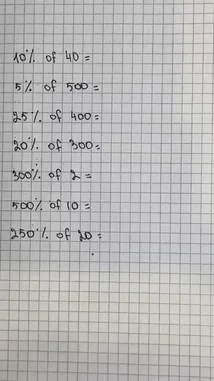 10% of 40 =
5% of 500 =
25% of 400 =
20% of 300 =
300% of 2 =
500% of 10 =
250% of 20 =